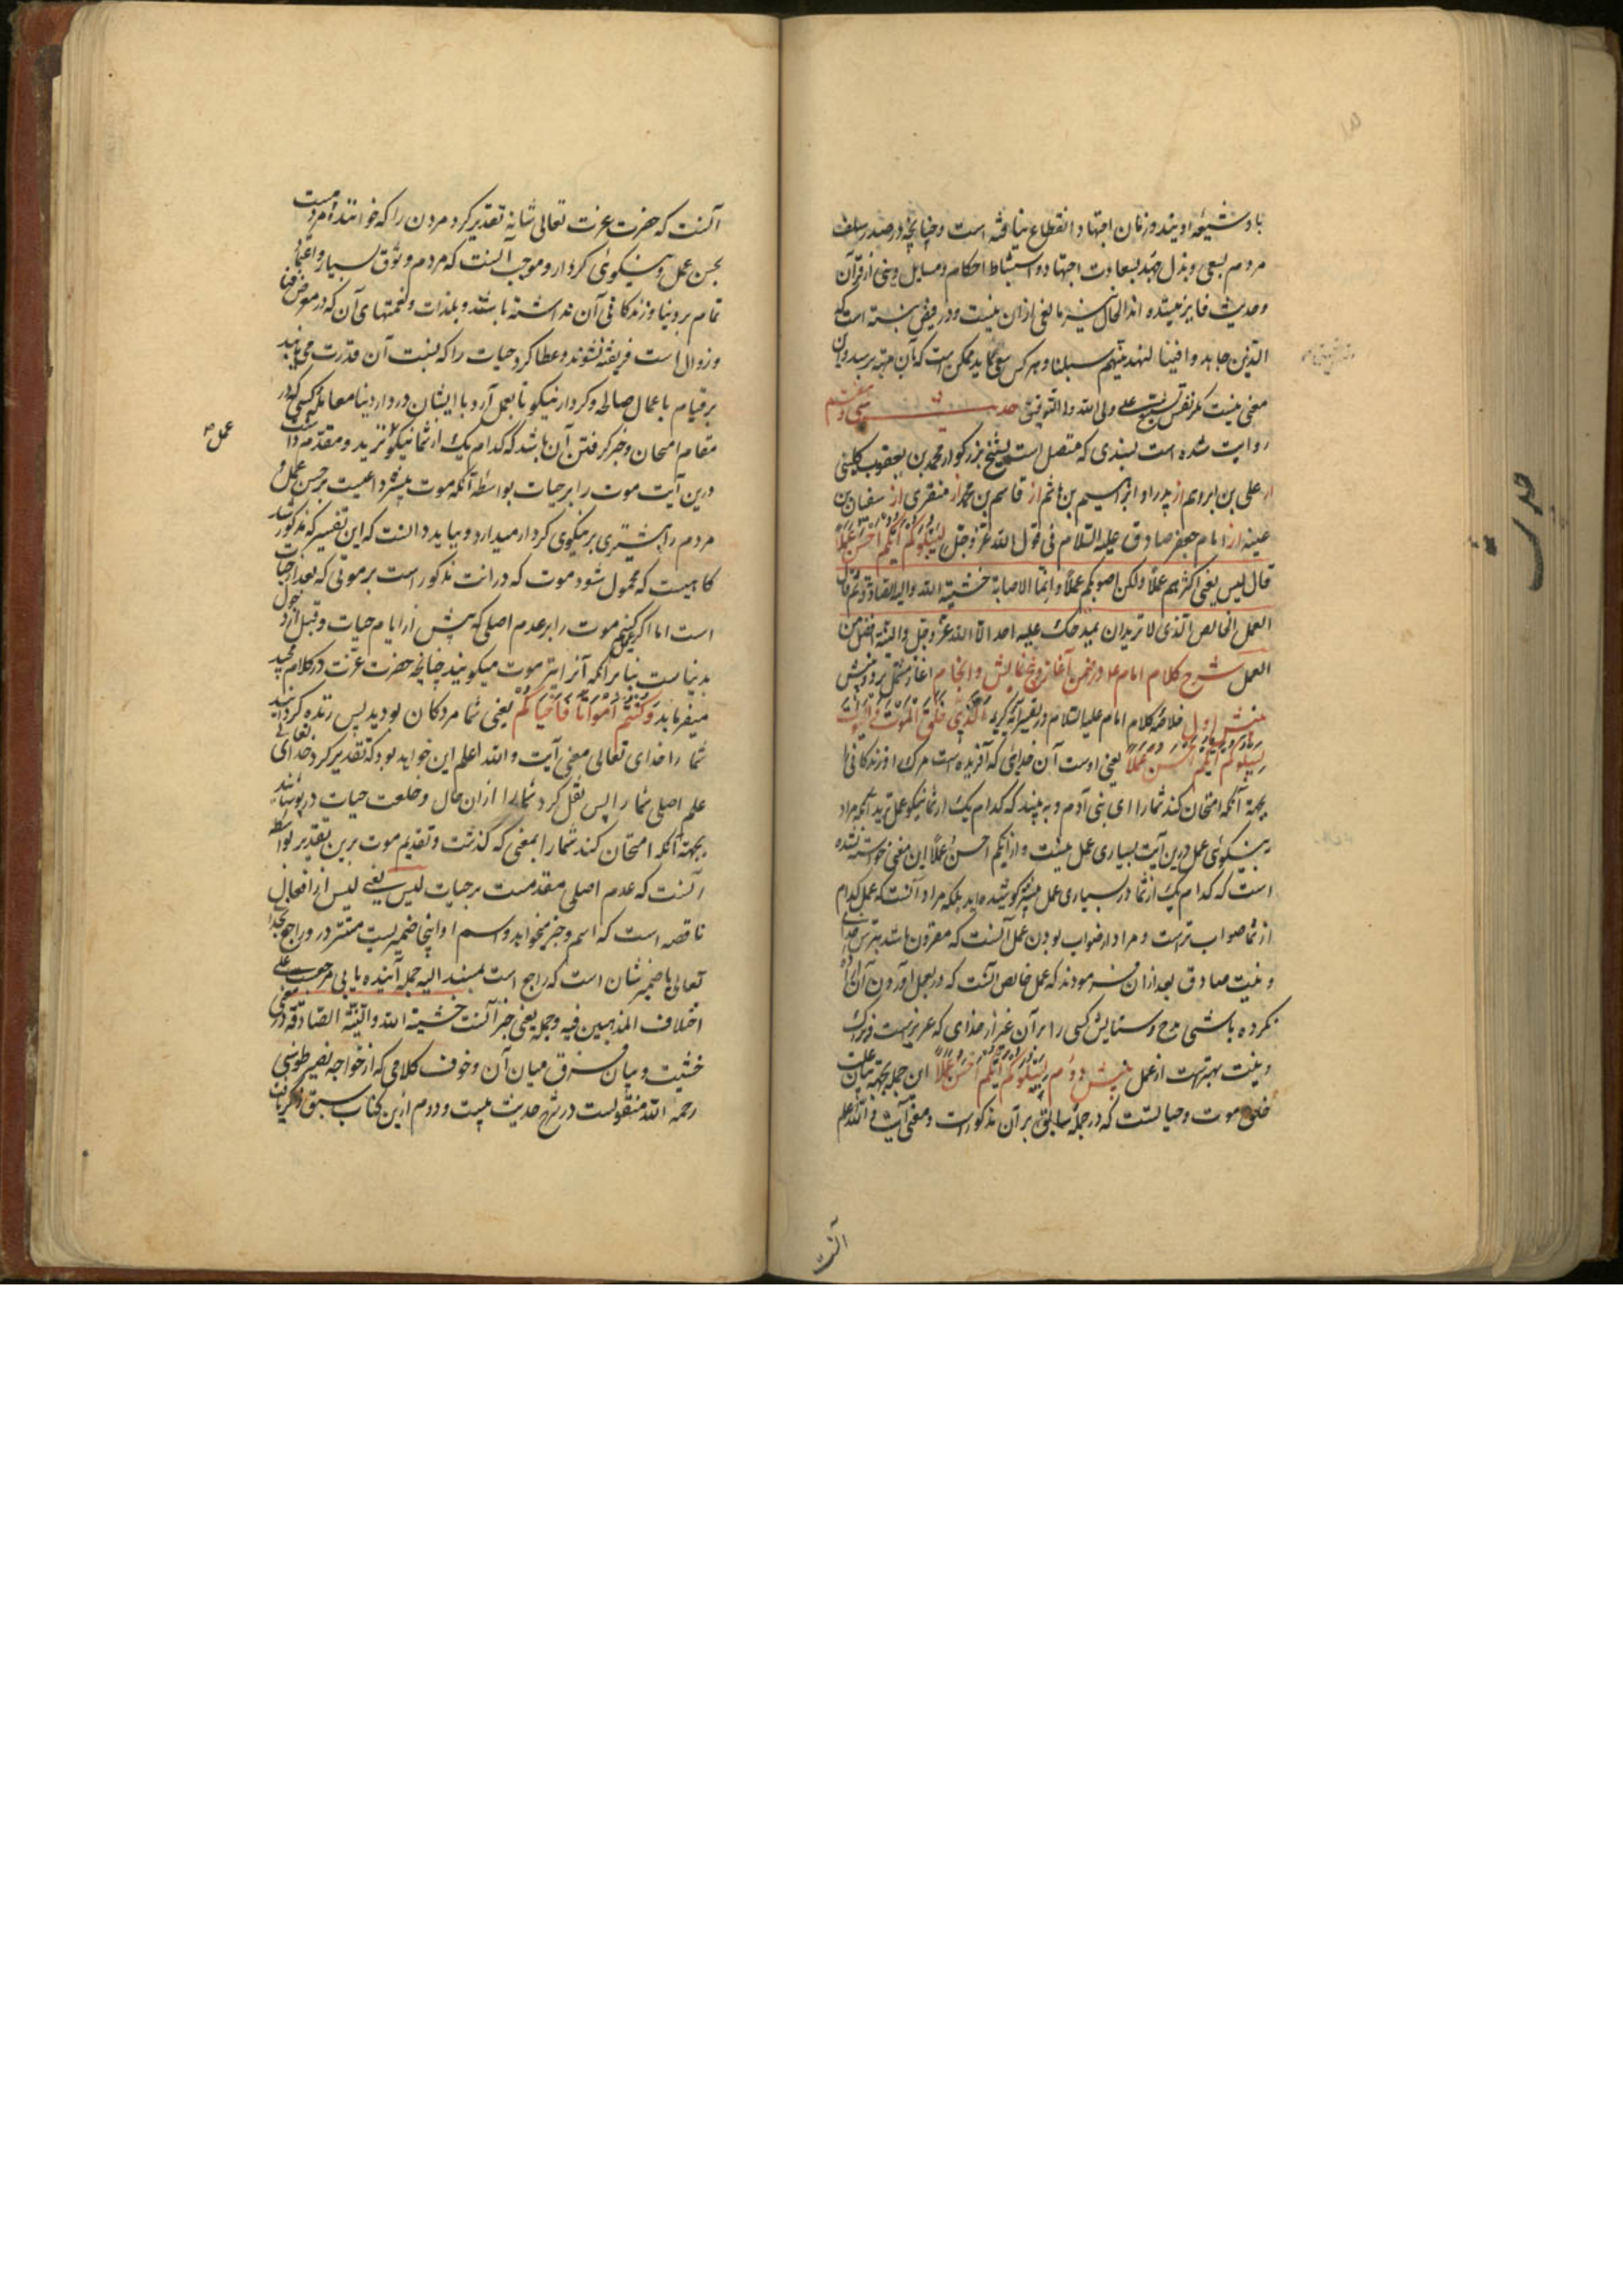 باد شیعه اویند و زمان اجتهاد انقطاع نیافته است و چنانچه در صدر سلف
مردم بسعی و بذل جهد بسعادت اجتهاد و استنباط احکام و مسایل دینی از قرآن
و حدیث فایز میشده اند الحال نیز مانعی از آن نیست و در فیض نبسته است که
الذین جاهدوا فینا لنهدینهم سبلنا و هر کس سعی نماید ممکن است که بآن مرتبه برسد و این
معنی نیست مگر تفضل ولی الله و لله التوفیق حدیث سی و هفتم
روایت شده است بسندی که متصل است بشیخ بزرگوار محمد بن یعقوب کلینی
از علی بن ابراهیم از پدر او ابراهیم بن هاشم از قاسم بن محمد از منقری از سفیان بن
عیینه از امام جعفر صادق علیه السلام فی قول الله عز و جل لِیَبْلُوَکُمْ اَیُّکُمْ اَحْسَنُ عَمَلًا
قال لیس یعنی اکثرهم عملاً ولکن اصوبکم عملاً و انما الاصابة خشیة الله والنیة الصادقة ثم قال
العمل الخالص الذی لا ترید ان یمدحک علیه احد الا الله عز و جل والنیة افضل من
العمل شرح کلام امام ع در ضمن آغاز و نمایش و انجام آغاز مشتمل بر دو بینش
بینش اول خلاصه کلام امام علیه السلام در تفسیر آیه کریمه اَلَّذِی خَلَقَ الْمَوْتَ وَ الْحَیٰوةَ
لِیَبْلُوَکُمْ اَیُّکُمْ اَحْسَنُ عَمَلًا یعنی اوست آن خدایی که آفریده است مرگ و زندگانی را
بجهة آنکه امتحان کند شما را ای بنی آدم و به بیند که کدام یک از شما نیکو عمل ترید آنکه مراد
بنیکوئی عمل درین آیت بسیاری عمل نیست و از ایکم احسن عملاً این معنی خواسته نشده
است که کدام یک از شما در بسیاری عمل بیشتر کوشیده اید بلکه مراد آنست که عمل کدام
از شما صواب تر است و مراد از صواب بودن عمل آنست که مقرون باشد بترس خدای
و نیت صادق بعد از آن فرمودند که عمل خالص آنست که در بعمل آوردن آن اراده
نکرده باشی مدح و ستایش کسی را بر آن غیر از خدای که عزیزست و بزرگ
و نیت بهترست از عمل بینش دوم لِیَبْلُوَکُمْ اَیُّکُمْ اَحْسَنُ عَمَلًا این جمله بجهة بیان علت
خلق موت و حیاتست که در جملهٔ سابق بر آن مذکور است و معنی آیت والله اعلم
آنست
آنست که حضرت عزت تعالی شانه تقدیر کرد مردن را که خواننده مردمست
بحسن عمل و نیکوئی کردار و موجب آنست که مردم وثوق بسیار و اعتماد
تمام بر دنیا و زندگانی آن نداشته باشند و بلذات و نعمتهای آن که در معرض فنا
و زوال است فریفته نشوند و عطا کرد حیات را که بسبب آن قدرت می یابند
بر قیام با عمال صالحه و کردار نیکو تا بعمل آرد با ایشان در دار دنیا معامله کسی که در
مقام امتحان و خبر گرفتن آن باشد که کدام یک از شما نیکو ترید و مقدم داشت
عمل
درین آیت موت را بر حیات بواسطه آنکه موت بیشتر داعیست بر حسن عمل و
مردم را بیشتری بر نیکوی کردار میدارد و بباید دانست که این تفسیر که مذکور شد
گاهیست که محمول شود موت که در آیت مذکور است بر موتی که بعد از حیات
است اما اگر حمل کنیم موت را بر عدم اصلی که پیش از ایام حیات و قبل از دخول
بدنیاست بنا بر آنکه آنرا نیز موت میگویند چنانچه حضرت عزت در کلام مجید
میفرماید وَ کُنْتُمْ اَمْوَاتًا فَاَحْیَاکُمْ یعنی شما مردگان بودید پس زنده گردانید
شما را خدای تعالی معنی آیت والله اعلم این خواهد بود که تقدیر کرد خدای تعالی
عدم اصلی شما را پس نقل کرد شما را از آن حال و خلعت حیات در پوشانید
بجهة آنکه امتحان کند شما را بمعنی که گذشت و تقدیم موت برین تقدیر بواسطه
آنست که عدم اصلی مقدمست بر حیات لیس یعنی لیس از افعال
ناقصه است که اسم و خبر میخواهد و اسم او اینجا ضمیریست مستتر در و راجع بخدا
تعالی یا ضمیر شان است که راجع است بمسند الیه جمله آینده
اختلاف المذهبین فیه و جمله یعنی خبر آنست خشیة الله والنیة الصادقة در معنی
خشیت و بیان فرق میان آن و خوف کلامی که از خواجه نصیر طوسی
رحمه الله منقولست در شرح حدیث بیست و دوم ازین کتاب سبق ذکر یافت